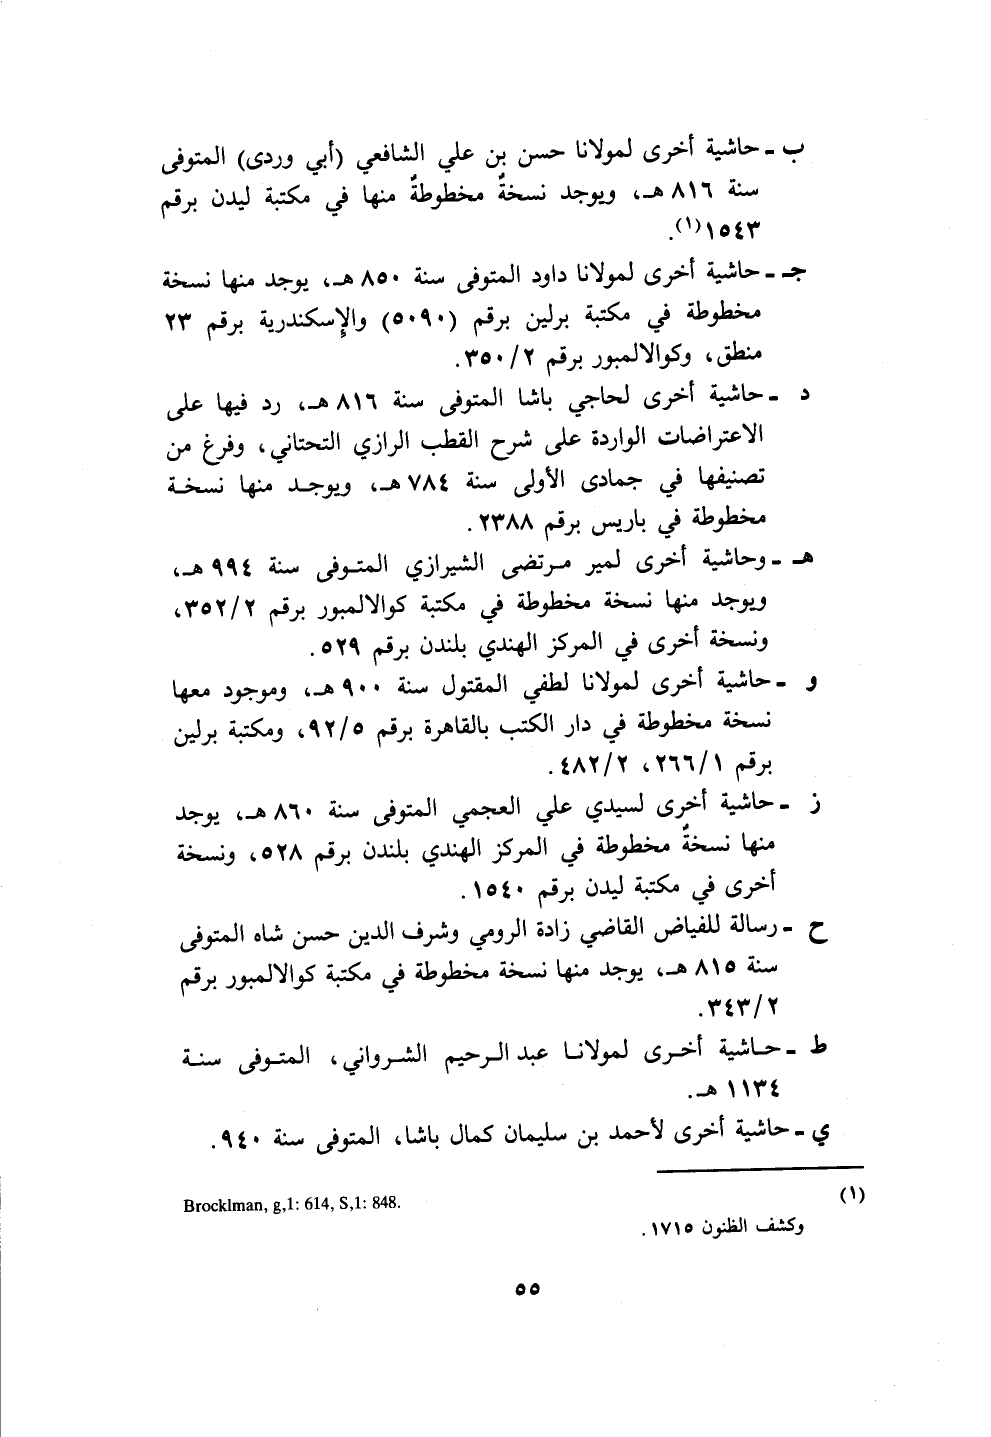 ب ـ حاشية أخرى لمولانا حسن بن علي الشافعي (أبي وردى) المتوفى
سنة ٨١٦ هـ، ويوجد نسخةٌ مخطوطةٌ منها في مكتبة ليدن برقم
١٥٤٣(١).
جـ ـ حاشية أخرى لمولانا داود المتوفى سنة ٨٥٠ هـ، يوجد منها نسخة
مخطوطة في مكتبة برلين برقم (٥٠٩٠) والإسكندرية برقم ٢٣
منطق، وكوالالمبور برقم ٣٥٠/٢.
د ـ حاشية أخرى لحاجي باشا المتوفى سنة ٨١٦ هـ، رد فيها على
الاعتراضات الواردة على شرح القطب الرازي التحتاني، وفرغ من
تصنيفها في جمادى الأولى سنة ٧٨٤ هـ، ويوجد منها نسخة
مخطوطة في باريس برقم ٢٣٨٨.
هـ ـ وحاشية أخرى لمير مرتضى الشيرازي المتوفى سنة ٩٩٤ هـ،
ويوجد منها نسخة مخطوطة في مكتبة كوالالمبور برقم ٣٥٢/٢،
ونسخة أخرى في المركز الهندي بلندن برقم ٥٢٩.
و ـ حاشية أخرى لمولانا لطفي المقتول سنة ٩٠٠ هـ، وموجود معها
نسخة مخطوطة في دار الكتب بالقاهرة برقم ٩٢/٥، ومكتبة برلين
برقم ٢٦٦/١، ٤٨٢/٢.
ز ـ حاشية أخرى لسيدي علي العجمي المتوفى سنة ٨٦٠ هـ، يوجد
منها نسخةٌ مخطوطة في المركز الهندي بلندن برقم ٥٢٨، ونسخة
أخرى في مكتبة ليدن برقم ١٥٤٠.
ح ـ رسالة للفياض القاضي زادة الرومي وشرف الدين حسن شاه المتوفى
سنة ٨١٥ هـ، يوجد منها نسخة مخطوطة في مكتبة كوالالمبور برقم
٣٤٣/٢.
ط ـ حاشية أخرى لمولانا عبد الرحيم الشرواني، المتوفى سنة
١١٣٤ هـ.
ي ـ حاشية أخرى لأحمد بن سليمان كمال باشا، المتوفى سنة ٩٤٠.
(١) Brocklman, g,1: 614, S,1: 848.
وكشف الظنون ١٧١٥.
٥٥